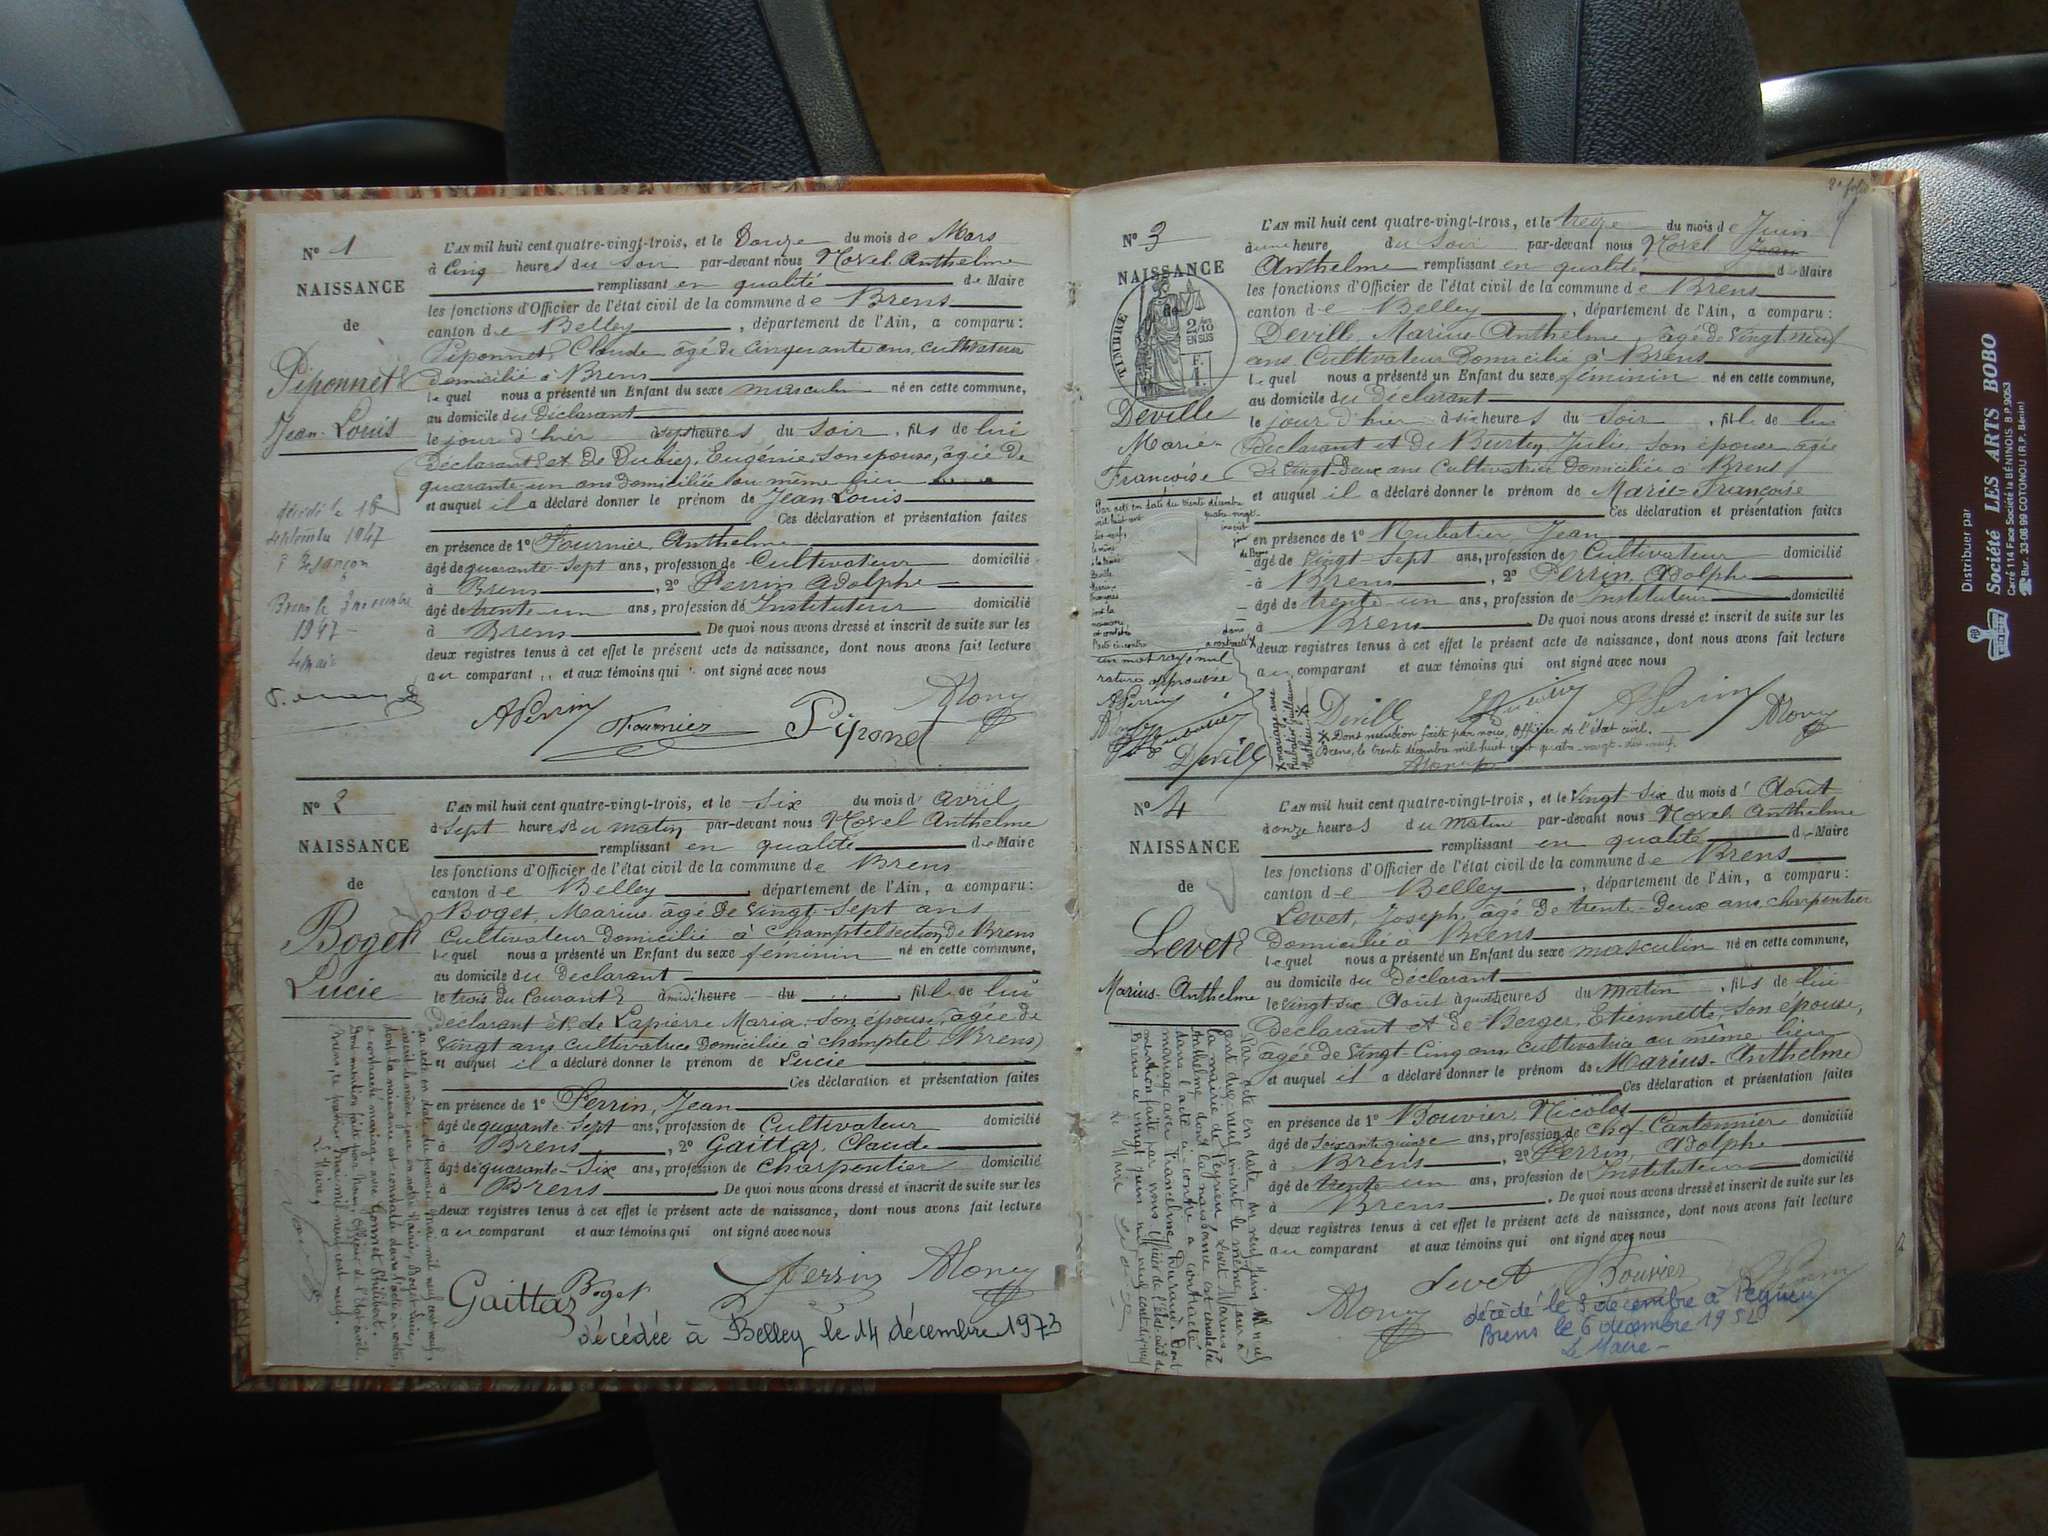 N° 1
NAISSANCE
de
Piponnet
Jean-Louis
décédé le 16
septembre 1947
à Besançon
Brens le 3 novembre
1947
le Maire
L'AN mil huit cent quatre-vingt-trois, et le Douze du mois de Mars
à Cinq heures du Soir par-devant nous Anthelme
remplissant en qualité de Maire
les fonctions d'Officier de l'état civil de la commune de Brens
canton de Belley, département de l'Ain, a comparu :
Piponnet Claude âgé de cinquante ans, cultivateur
domicilié à Brens
lequel nous a présenté un Enfant du sexe masculin né en cette commune,
au domicile du Déclarant
le jour d'hier à sept heures du Soir, fils de lui
Déclarant et de Dubiez, Eugénie, son épouse, âgée de
quarante-un ans Domiciliée au même lieu
et auquel il a déclaré donner le prénom de Jean Louis
Ces déclaration et présentation faites
en présence de 1° Fournier, Anthelme
âgé de quarante-sept ans, profession de Cultivateur domicilié
à Brens, 2° Perrin Adolphe
âgé de trente-un ans, profession de Instituteur domicilié
à Brens De quoi nous avons dressé et inscrit de suite sur les
deux registres tenus à cet effet le présent acte de naissance, dont nous avons fait lecture
au comparant et aux témoins qui ont signé avec nous
APerrin Fournier Piponet
N° 2
NAISSANCE
de
Boget
Lucie
L'AN mil huit cent quatre-vingt-trois, et le Six du mois d'Avril
à Sept heures du matin par-devant nous Anthelme
remplissant en qualité de Maire
les fonctions d'Officier de l'état civil de la commune de Brens
canton de Belley, département de l'Ain, a comparu :
Boget, Marius âgé de Vingt-Sept ans
Cultivateur Domicilié à Champtel section de Brens
lequel nous a présenté un Enfant du sexe féminin né en cette commune,
au domicile du Déclarant
le trois du Courant à midi heure du , fille de lui
Déclarant et de Lapierre Maria, son épouse, âgée de
Vingt ans Cultivatrice Domiciliée à Champtel (Brens)
et auquel il a déclaré donner le prénom de Lucie
Ces déclaration et présentation faites
en présence de 1° Perrin, Jean
âgé de quarante-sept ans, profession de Cultivateur domicilié
à Brens, 2° Gaittaz, Claude
âgé de quarante-Six ans, profession de Charpentier domicilié
à Brens De quoi nous avons dressé et inscrit de suite sur les
deux registres tenus à cet effet le présent acte de naissance, dont nous avons fait lecture
au comparant et aux témoins qui ont signé avec nous
Gaittaz Boget Perrin
décédée à Belley le 14 décembre 1973
Par acte en date du premier mai mil neuf cent neuf,
inscrit le même jour en notre Mairie, Boget Lucie,
dont la naissance est constatée dans l'acte ci-contre,
a contracté mariage avec Gonnet Philibert.
Dont mention faite par Nous, Officier de l'Etat-civil.
Brens, le premier mai mil neuf cent neuf.
Le Maire,
2e folio
N° 3
NAISSANCE
de
TIMBRE
2/10
EN SUS
Deville
Marie-
Françoise
Par acte en date du trente décembre
un mot rayé nul
rature approuvée
APerrin
Deville
L'AN mil huit cent quatre-vingt-trois, et le treize du mois de Juin
à une heure du Soir par-devant nous Jean
Anthelme remplissant en qualité de Maire
les fonctions d'Officier de l'état civil de la commune de Brens
canton de Belley, département de l'Ain, a comparu :
Deville, Marius Anthelme, âgé de Vingt-neuf
ans Cultivateur Domicilié à Brens
lequel nous a présenté un Enfant du sexe féminin né en cette commune,
au domicile du Déclarant
le jour d'hier à six heures du Soir, fille de lui
Déclarant et de Burtey Julie, son épouse âgée
de Vingt-Deux ans Cultivatrice Domiciliée à Brens
et auquel il a déclaré donner le prénom de Marie-Françoise
Ces déclaration et présentation faites
en présence de 1° Rubatier, Jean
âgé de Vingt-Sept ans, profession de Cultivateur domicilié
à Brens, 2° Perrin, Adolphe
âgé de trente-un ans, profession de Instituteur domicilié
à Brens De quoi nous avons dressé et inscrit de suite sur les
deux registres tenus à cet effet le présent acte de naissance, dont nous avons fait lecture
au comparant et aux témoins qui ont signé avec nous
Deville APerrin
X Dont mention faite par nous, Officier de l'état civil.
Brens, le trente décembre mil huit cent quatre-vingt-dix-neuf.
X mariage avec
N° 4
NAISSANCE
de
Levet
Marius-Anthelme
L'AN mil huit cent quatre-vingt-trois, et le Vingt-Six du mois d'Août
à onze heures du Matin par-devant nous Anthelme
remplissant en qualité de Maire
les fonctions d'Officier de l'état civil de la commune de Brens
canton de Belley, département de l'Ain, a comparu :
Levet, Joseph, âgé de trente-Deux ans, charpentier
Domicilié à Brens
lequel nous a présenté un Enfant du sexe masculin né en cette commune,
au domicile du Déclarant
le Vingt-six Août à heures du Matin, fils de lui
Déclarant et de Berger, Etiennette, son épouse,
âgée de Vingt-Cinq ans, Cultivatrice au même lieu
et auquel il a déclaré donner le prénom de Marius-Anthelme
Ces déclaration et présentation faites
en présence de 1° Bouvier, Nicolas
âgé de Soixante-quinze ans, profession de Chef Cantonnier domicilié
à Brens, 2° Perrin, Adolphe
âgé de trente-un ans, profession de Instituteur domicilié
à Brens. De quoi nous avons dressé et inscrit de suite sur les
deux registres tenus à cet effet le présent acte de naissance, dont nous avons fait lecture
au comparant et aux témoins qui ont signé avec nous
Levet Bouvier
décédé le 3 décembre à Peyrieu
Brens le 6 décembre 1952
Le Maire
Par acte en date du neuf Juin Mil neuf
cent dix neuf inscrit le même jour à
la mairie de Peyrieu, Levet Marius
Anthelme dont la naissance est constatée
dans l'acte ci-contre a contracté
mariage avec Franceline Durand. Dont
mention faite par nous Officier de l'état-civil de
Brens ce vingt Juin mil neuf cent dix neuf
Le Maire
Distribuer par
Société LES ARTS BOBO
Carré 114 Face Société la BÉNINOIS. B.P. 9053
Bur. 33.08.99 COTONOU (R.P. Bénin)